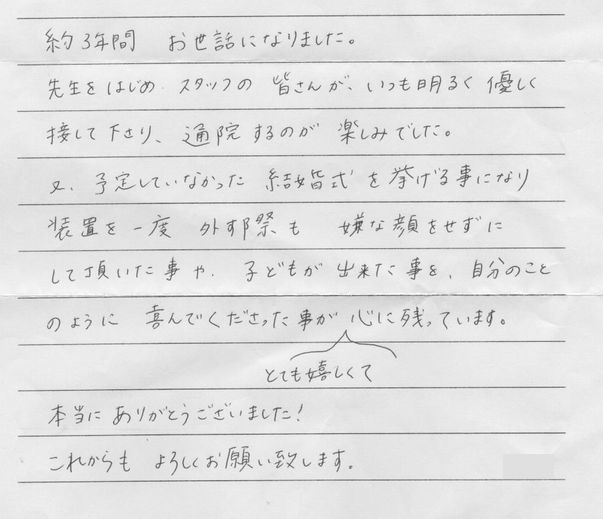 約3年間 お世話になりました。
先生をはじめ、スタッフの 皆さんが、いつも明るく 優しく
接して下さり、通院するのが 楽しみでした。
又、予定していなかった 結婚式を挙げる事になり
装置を一度 外す祭も 嫌な顔をせずに
して頂いた事や、子どもが 出来た事を、自分のこと
のように 喜んでくださった事が 心に残っています。
とても嬉しくて
本当に ありがとうございました!
これからも よろしくお願い致します。